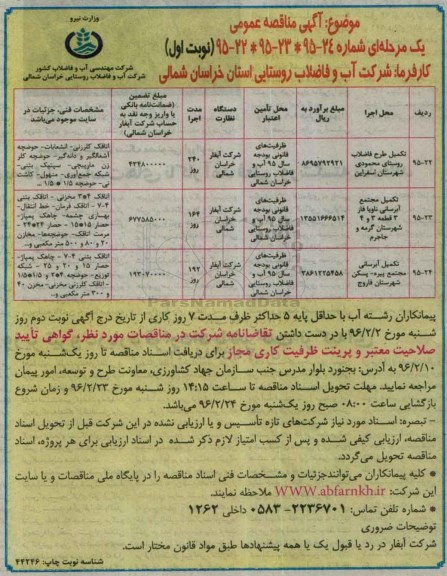 وزارت نیرو
شرکت مهندسی آب و فاضلاب کشور
شرکت آب و فاضلاب روستایی خراسان شمالی
موضوع: آگهی مناقصه عمومی
یک مرحله‌ای شماره ۲۴-۹۵ * ۲۳-۹۵ * ۲۲-۹۵ (نوبت اول)
کارفرما: شرکت آب و فاضلاب روستایی استان خراسان شمالی
ردیف
محل اجرا
مبلغ برآورد به ریال
محل تأمین اعتبار
دستگاه نظارت
مدت اجرا
مبلغ تضمین (ضمانت‌نامه بانکی یا واریز وجه نقد به حساب شرکت آبفار خراسان شمالی)
مشخصات فنی، جزئیات در سایت موجود می‌باشد
تکمیل طرح فاضلاب روستای محمودی شهرستان اسفراین
۸۶۹۵۷۹۲۹۲۱
ظرفیت‌های قانونی بودجه سال ۹۵ آب و فاضلاب روستایی خراسان شمالی
شرکت آبفار خراسان شمالی
۲۴۰ روز
۴۳۴۸۰۰۰۰۰
۹۵-۲۳
تکمیل مجتمع آبرسانی ناویا فاز ۳ قطعه ۳ و ۴ شهرستان گرمه و جاجرم
۱۳۵۵۱۶۶۶۵۱۴
ظرفیت‌های قانونی بودجه سال ۹۵ آب و فاضلاب روستایی خراسان شمالی
شرکت آبفار خراسان شمالی
۱۶۴ روز
۶۷۷۵۸۵۰۰۰
۹۵-۲۴
تکمیل آبرسانی مجتمع بیره- پسکن شهرستان فاروج
۳۸۶۱۲۲۵۴۵۸
ظرفیت‌های قانونی بودجه سال ۹۵ آب و فاضلاب روستایی خراسان شمالی
شرکت آبفار خراسان شمالی
۱۹۲ روز
۱۹۳۰۷۰۰۰۰
ParsNamadData
پیمانکاران رشته آب با حداقل پایه ۵ حداکثر ظرف مدت ۷ روز کاری از تاریخ درج آگهی نوبت دوم روز
شنبه مورخ ۹۶/۲/۲ با در دست داشتن تقاضانامه شرکت در مناقصات مورد نظر، گواهی تأیید
صلاحیت معتبر و پرینت ظرفیت کاری مجاز برای دریافت اسناد مناقصه تا روز یک‌شنبه مورخ
۹۶/۲/۱۰ به آدرس: بجنورد بلوار مدرس جنب سازمان جهاد کشاورزی، معاونت طرح و توسعه، امور پیمان
مراجعه نمایید. مهلت تحویل اسناد مناقصه تا ساعت ۱۴:۱۵ روز شنبه مورخ ۹۶/۲/۲۳ و زمان شروع
بازگشایی ساعت ۰۸:۰۰ صبح روز یک‌شنبه مورخ ۹۶/۲/۲۴ می‌باشد.
- تبصره: اسناد مورد نیاز شرکت‌های تازه تأسیس و یا ارزیابی نشده در این شرکت قبل از تحویل اسناد
مناقصه، ارزیابی کیفی شده و پس از کسب امتیاز لازم ذکر شده در اسناد ارزیابی برای هر پروژه، اسناد
مناقصه تحویل می‌گردد.
• کلیه پیمانکاران می‌توانند جزئیات و مشخصات فنی اسناد مناقصه را در پایگاه ملی مناقصات و یا سایت
این شرکت: www.abfarnkh.ir ملاحظه نمایند.
• شماره تلفن تماس: ۲۲۳۶۷۰۱-۰۵۸۳ داخلی ۱۲۶۲
توضیحات ضروری
شرکت آبفار در رد یا قبول یک یا همه پیشنهادها طبق مواد قانون مختار است.
شناسه نوبت چاپ: ۴۴۲۴۶